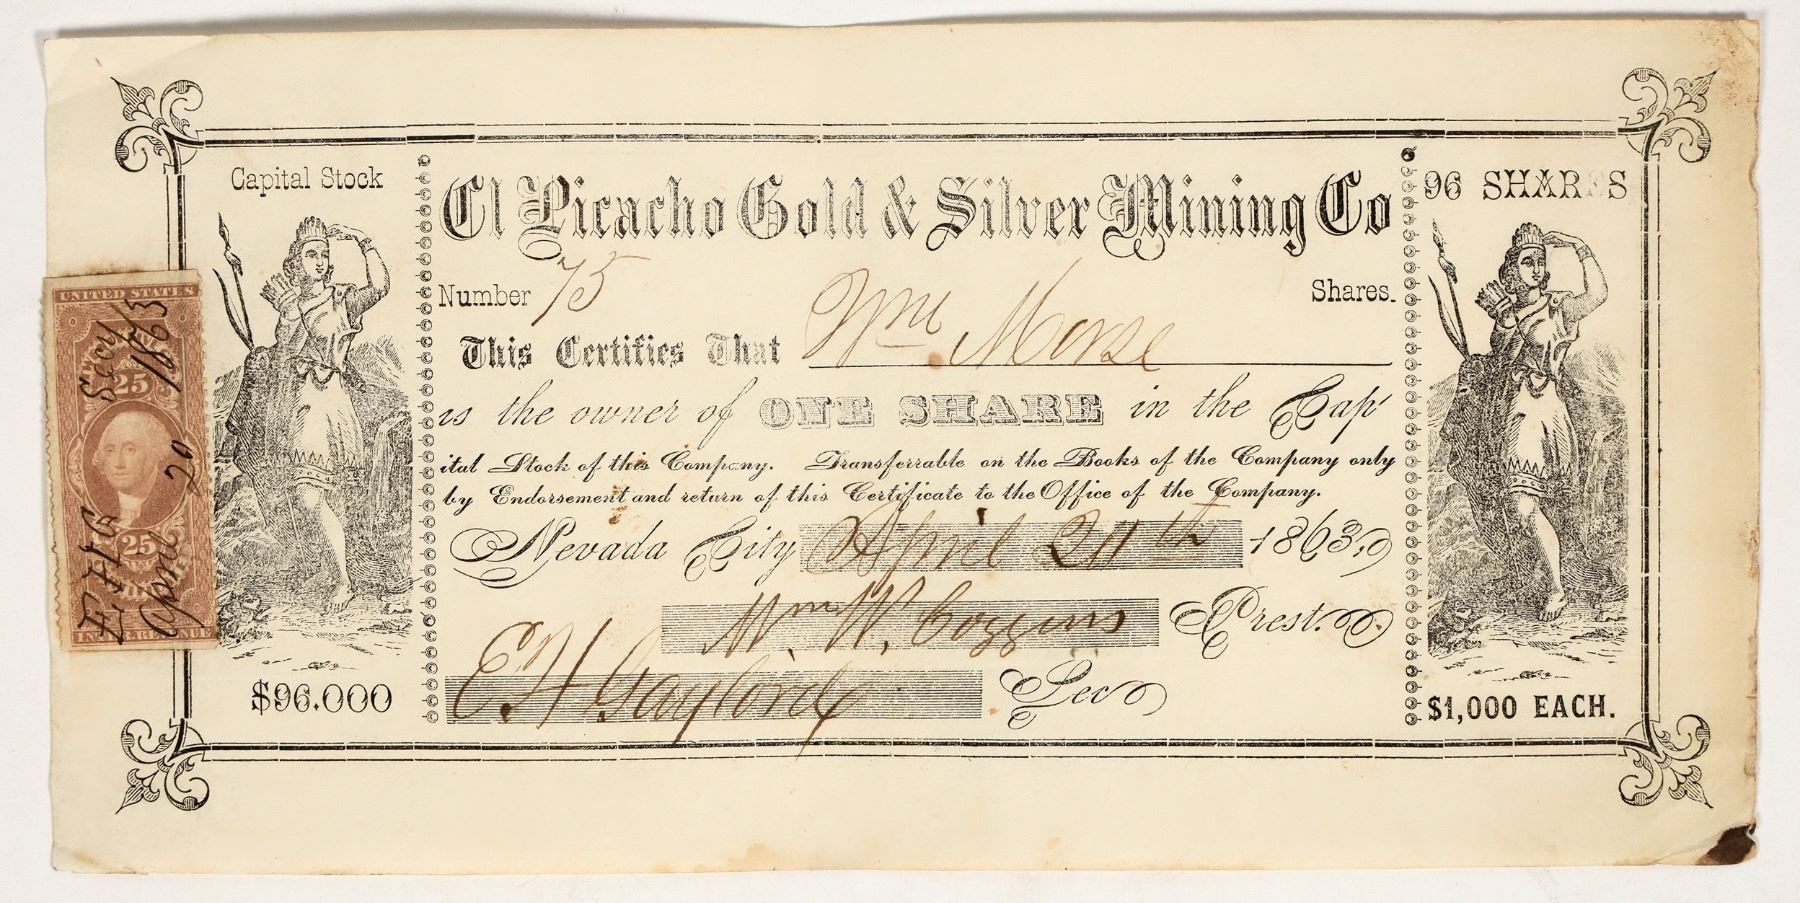 Capital Stock
El Picacho Gold & Silver Mining Co
96 SHARES
Number 75
Shares.
This Certifies That Wm Morse
is the owner of ONE SHARE in the Cap'
ital Stock of this Company. Transferrable on the Books of the Company only
by Endorsement and return of this Certificate to the Office of the Company.
Nevada City April 20th 1863,
Wm. W. Coggins Prest.
E H Gaylord Sec
$96.000
$1,000 EACH.
UNITED STATES
25
25
INTER. REVENUE
E H G Secy
April 20 1863